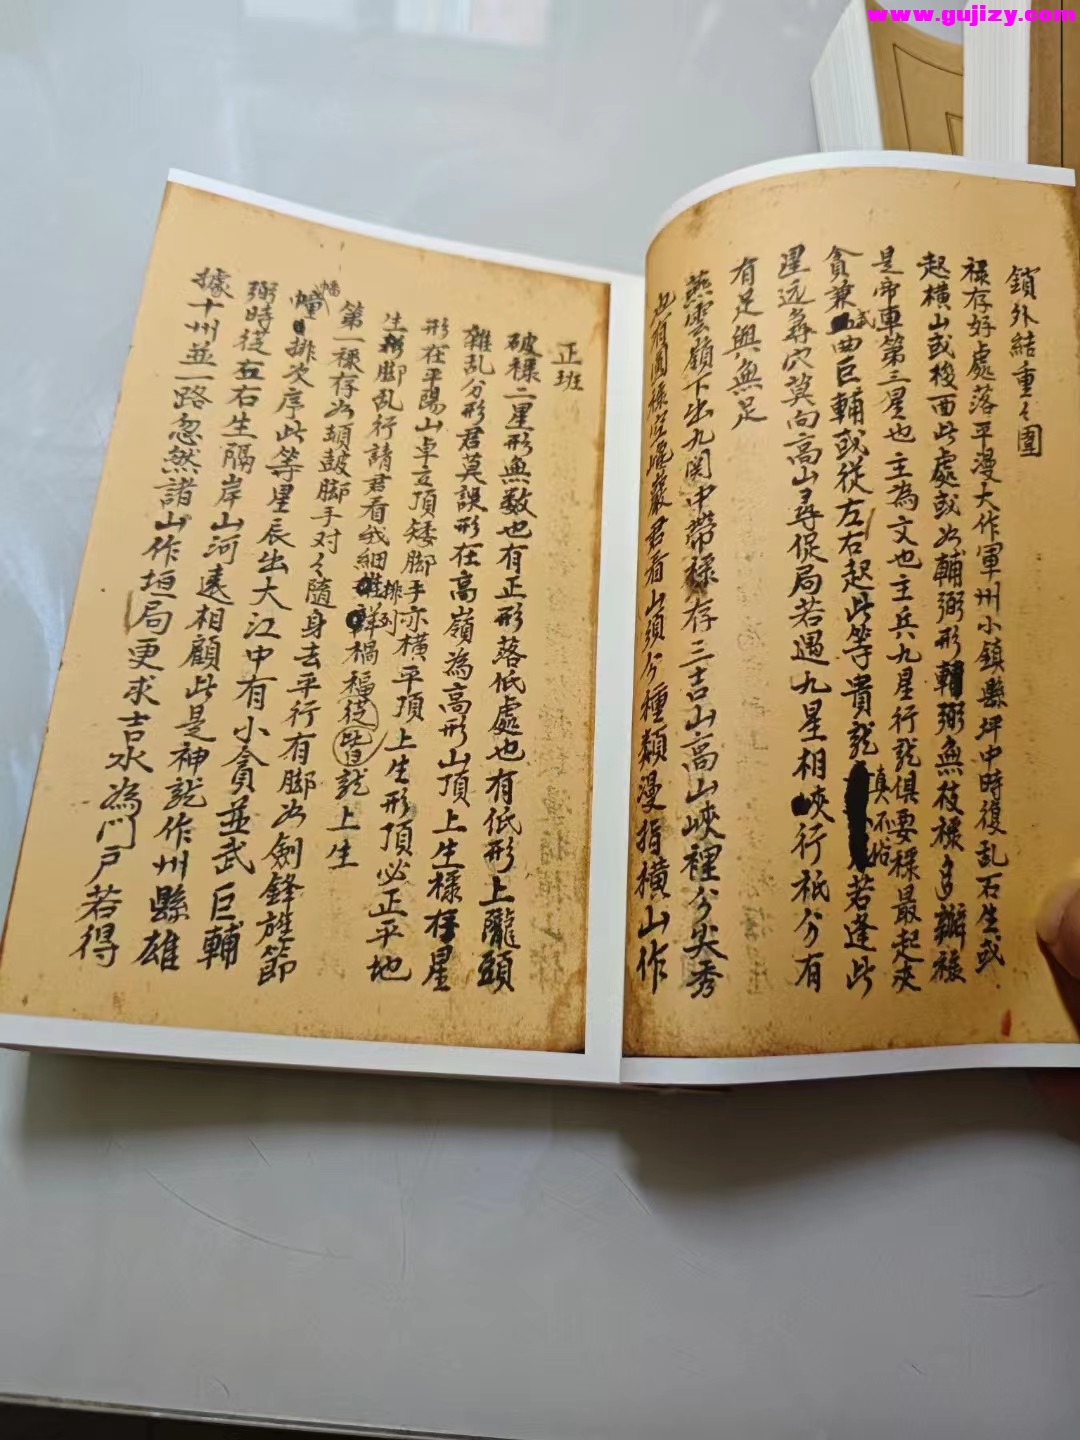 www.gujizy.com
鎖外結重々圍
祿存好處落平漫大作軍州小鎮縣坪中時復乱石生或
起橫山或梭面此處或如輔弼形輔弼無枝祿多瓣祿
是帝車第三星也主為文也主兵九星行龍俱要祿最起夾
貪兼武曲巨輔或從左右起此等貴龍真不拾若逢此
星远尋穴莫向高山尋促局若遇九星相峽行祇分有
有足與無足
燕雲嶺下出九関中帶祿存三吉山高山峽裡分尖秀
也有圓祿巖君看山頭分種類漫指橫山作
正班
破祿二星形無数也有正形落低處也有低形上隴頭
雜乱分形君莫誤形在高嶺為高形山頂上生祿存星
形在平陽山卓立頂矮脚手亦橫平頂上生形頂必正平地
生形脚乱行請君看我細排列祥禍福從皆龍上生
第一祿存如頓鼓脚手对々隨身去平行有脚如劍鋒旌節
幡幢排次序此等星辰出大江中有小貪並武巨輔
弼時從左右生隔岸山河遠相顧此是神龍作州縣雄
據十州並一路忽然諸山作垣局更求吉水為門户若得